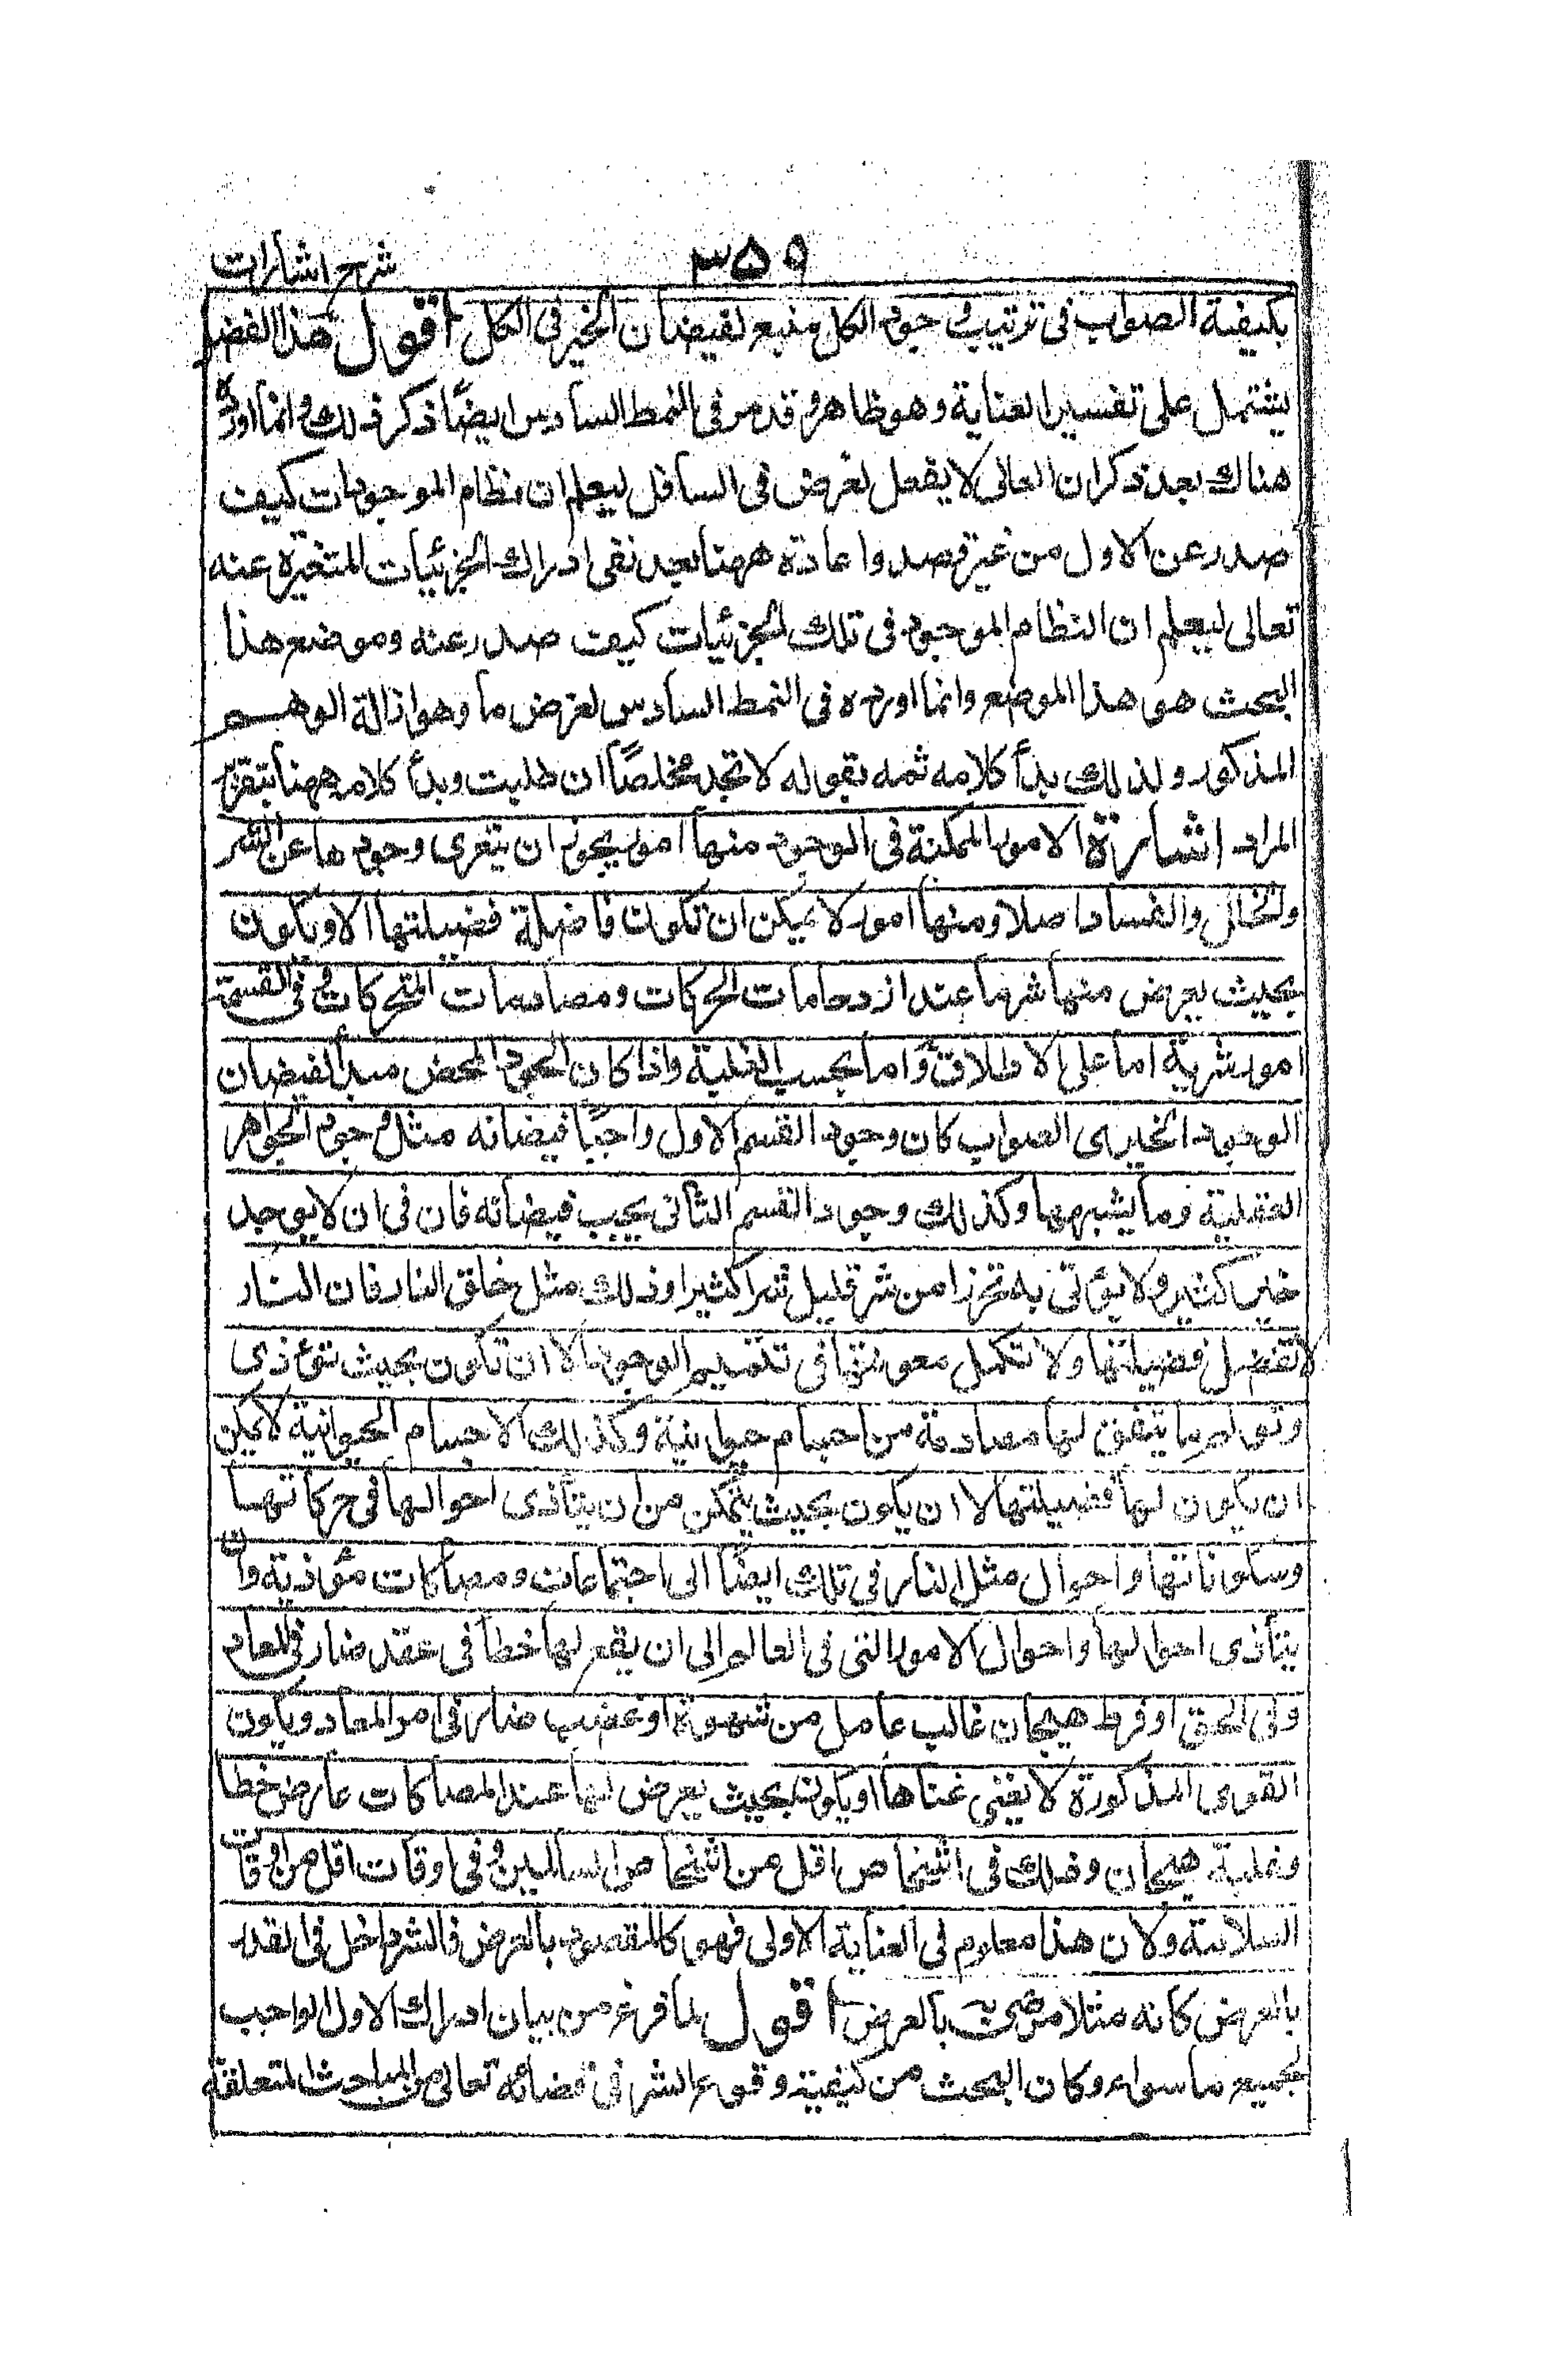 ٣٥٩
شرح اشارات
بكيفية الصواب فى ترتيب وجود الكل منبع لفيضان الخير فى الكل اقول هذا الفصل
يشتمل على تفسير العناية وهو ظاهر وقد مر فى النمط السادس ايضًا ذكر ذلك وانما اورده
هناك بعد ذكر ان العالى لا يفعل لغرض فى السافل ليعلم ان نظام الموجودات كيف
صدر عن الاول من غير قصد واعادة ههنا بعد نفى ادراك الجزئيات المتغيرة عنه
تعالى ليعلم ان النظام الموجود فى تلك الجزئيات كيف صدر عنه وموضع هذا
البحث هو هذا الموضع وانما اورده فى النمط السادس لغرض ما وهو ازالة الوهم
المذكور ولذلك بدأ كلامه ثمه بقوله لا تجد مخلصًا ان طلبت وبدأ كلامه ههنا بتقرير
المراد اشارة الامور الممكنة فى الوجود منها امور يجوز ان يتعرى وجودها عن الشر
والخلل والفساد اصلا ومنها امور لا يمكن ان تكون فاضلة فضيلتها الا ويكون
بحيث يعرض منها شر ما عند ازدحامات الحركات ومصادمات المتحركات وفى القسمة
امور شرية اما على الاطلاق واما بحسب الغلبة واذا كان الجود المحض مبدأ لفيضان
الوجود الخيرى الصواب كان وجود القسم الاول واجبًا فيضانه مثل وجود الجواهر
العقلية وما يشبهها وكذلك وجود القسم الثانى يجب فيضانه فان فى ان لا يوجد
خير كثير ولا يؤتى به تحرزا من شر قليل شرا كثيرا وذلك مثل خلق النار فان النار
لا تفضل فضيلتها ولا تكمل معونتها فى تتميم الوجود الا ان تكون بحيث تؤذى
وتولم ما يتفق لها مصادمة من اجسام حيوانية وكذلك الاجسام الحيوانية لا يمكن
ان يكون لها فضيلتها الا ان يكون بحيث يتمكن من ان يتأذى احوالها فى حركاتها
وسكوناتها واحوال مثل النار فى تلك ايضًا الى اجتماعات ومصاكات مؤذية وان
يتأذى احوالها واحوال الامور التى فى العالم الى ان يقع لها خطأ فى عقد ضار فى المعاد
وفى الحق او فرط هيجان غالب عامل من شهوة او غضب ضار فى امر المعاد ويكون
القوى المذكورة لا يغنى غناها او يكون بحيث يعرض لها عند المصاكات عارض خطا
وغلبة هيجان وذلك فى اشخاص اقل من اشخاص السالمين وفى اوقات اقل من اوقات
السلامة ولان هذا معلوم فى العناية الاولى فهو كالمقصود بالعرض فالشر داخل فى القدر
بالعرض كانه مثلا مرضى به بالعرض اقول لما فرغ من بيان ادراك الاول الواجب
لجميع ما سواه وكان البحث من كيفية وقوع الشر فى قضائه تعالى من المباحث المتعلقة